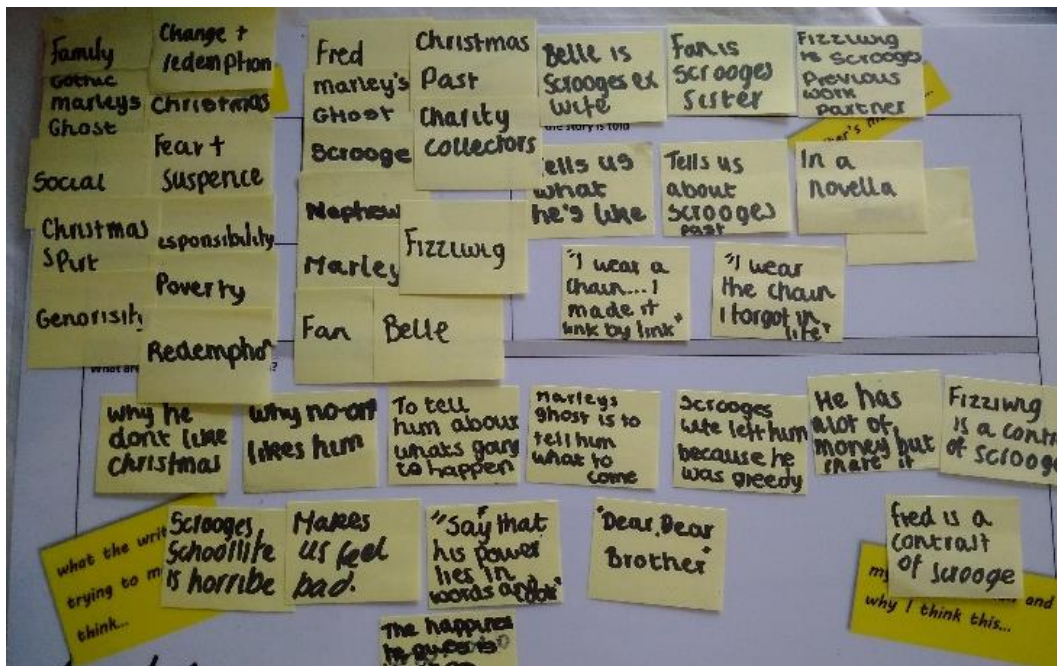 Family
Gothic
Marleys
Ghost
Social
Christmas
Spirt
Change +
redemption
Christmas
Fear +
Suspence
esponsibility
Poverty
Redemption
Fred
marley's
GHOST
Scrooge
Nephew
Marley
Fan
Christmas
Past
Charity
collectors
Fizziwig
Belle
Belle is
Scrooges ex
wife
Fan is
Scrooges
Sister
Fizziwig
is scrooges
Previous
work
partner
the story is told
Tells us
what
he's like
Tells us
about
Scrooges
past
In a
novella
"I wear a
chain... I
made it
link by link"
"I wear
the chain
I forgot in
life"
What are
why he
dont like
Christmas
Why no-on
likes him
To tell
him about
whats going
to happen
Marleys
ghost is to
tell him
what to
come
Scrooges
wife left him
because he
was greedy
He has
alot of
money but
Fizziwig
is a cont
of scrooge
what the writ
trying to m
think...
Scrooges
Schoollife
is horribe
Makes
us feel
bad.
"Say that
his power
lies in
words and
"Dear, Dear
Brother"
fred is a
contralt
of scrooge
my
and
why I think this...
The happines
he gives is